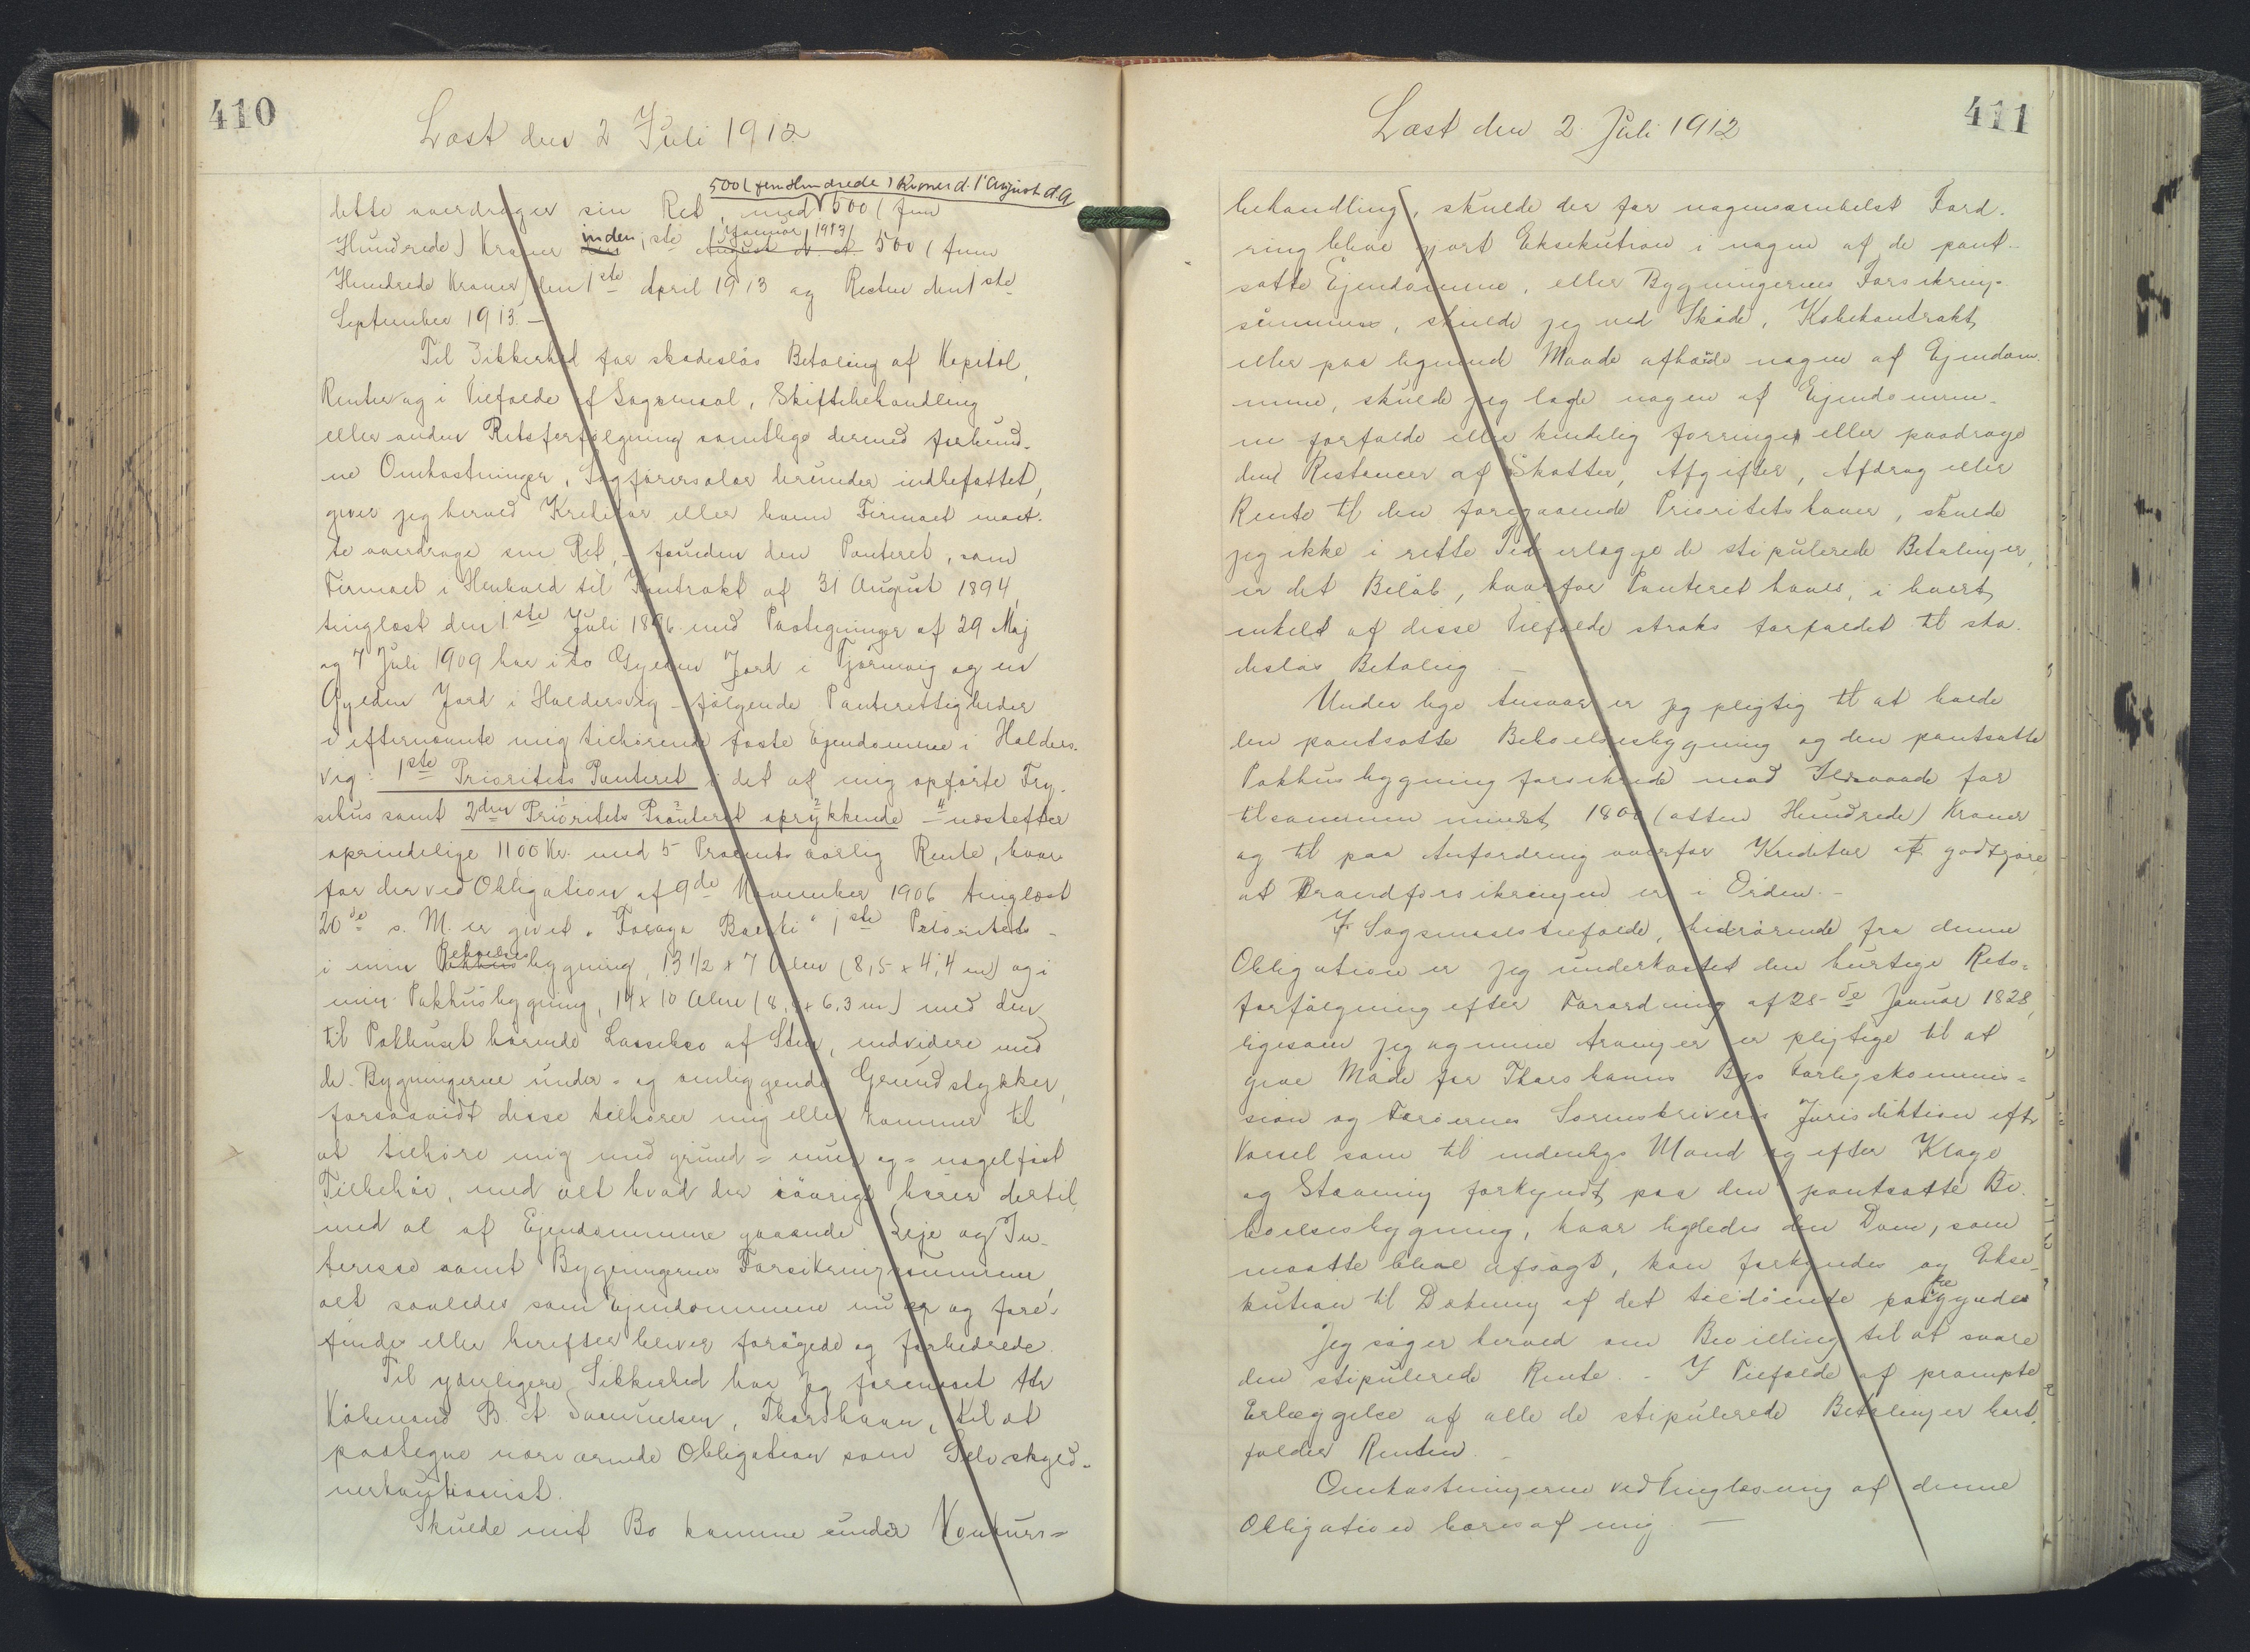 410
Læst den 2 Juli 1912
500 (fem Hundrede) Kroner d. 1' August d. A
dette overdrager sin Ret, med 500 (fem
Hundrede) Kroner den inden 1ste August d. A. Januar 1913, 500 (fem
Hundrede Kroner) den 1ste April 1913 og Resten den 1ste
September 1913. —
Til Sikkerhed for skadesløs Betaling af Kapital,
Renter og i Tilfælde af Søgsmaal, Skiftebehandling
eller anden Retsforfølgning samtlige dermed forbund-
ne Omkostninger, Sagførersalær herunder indbefattet,
giver jeg herved Kreditor eller hvem Firmaet maat-
te overdrage sin Ret, — foruden den Panteret, som
Firmaet i Henhold til Kontrakt af 31 August 1894,
tinglæst den 1ste Juli 1896 med Paategninger af 29 Maj
og 7 Juli 1909 har i to Gylden Jord i Tjørnevig og en
Gylden Jord i Haldersvig — følgende Panterettigheder
i efternævnte mig tilhørende faste Ejendomme i Halders-
vig: 1ste Prioritets Panteret i det af mig opførte Fry-
sehus samt 2den Prioritets Panteret oprykkende — næstefter
oprindelige 1100 Kr. med 5 Procents aarlig Rente, hvor-
for der ved Obligation af 9de November 1906 tinglæst
20de s. M. er givet "Færøya Banki" 1ste Prioritets-
i min Pakhus Beboelsesbygning, 13 1/2 x 7 Alen (8,5 x 4,4 m) og i
min Pakhusbygning, 14 x 10 Alen (8,8 x 6,3 m) med den
til Pakhuset hørende Lassebro af Sten, endvidere med
de Bygningerne under- og omliggende Grundstykker,
forsaavidt disse tilhører mig eller kommer til
at tilhøre mig med grund- mur- og nagelfast
Tilbehør, med alt hvad der iøvrigt hører dertil,
med al af Ejendommene gaaende Leje og In-
teresse samt Bygningernes Forsikringssummer
alt saaledes som Ejendommene nu er og fore-
findes eller herefter bliver forøgede og forbedrede.
Til yderligere Sikkerhed har jeg formaaet Hr
Købmand B. A. Samuelsen, Thorshavn, til at
paategne nærværende Obligation som Selvskyld-
nerkautionist.
Skulde mit Bo komme under Konkurs-
411
Læst den 2. Juli 1912
behandling, skulde der for nogensomhelst Ford-
ring blive gjort Eksekution i nogen af de pant-
satte Ejendomme, eller Bygningernes Forsikrings-
summer, skulde jeg ved Skøde, Købekontrakt,
eller paa lignende Maade afhænde nogen af Ejendom-
mene, skulde jeg lade nogen af Ejendomme-
ne forfalde eller kendelig forringes eller paadrage
dem Restancer af Skatter, Afgifter, Afdrag eller
Rente til den foregaaende Prioritetshaver, skulde
jeg ikke i rette Tid erlægge de stipulerede Betalinger,
er det Beløb, hvorfor Panteret haves, i hvert
enkelt af disse Tilfælde straks forfaldet til ska-
desløs Betaling. —
Under lige Ansvar er jeg pligtig til at holde
den pantsatte Beboelsesbygning og den pantsatte
Pakhusbygning forsikrede mod Ildsvaade for
tilsammen mindst 1800 (atten Hundrede) Kroner
og til paa Anfordring overfor Kreditor at godtgøre,
at Brandforsikringen er i Orden. —
I Søgsmaalstilfælde, hidrørende fra denne
Obligation er jeg underkastet den hurtige Rets-
forfølgning efter Forordning af 28-de Januar 1828,
ligesom jeg og mine Arvinger er pligtige til at
give Møde for Thorshavns Bys Forligskommis-
sion og Færøernes Sorenskriveris Jurisdiktion efter
Varsel som til indenbys Mand og efter Klage
og Stævning forkyndt paa den pantsatte Be-
boelsesbygning, hvor ligeledes den Dom, som
maatte blive afsagt, kan forkyndes og Ekse-
kution til Dækning af det tildømte paabegyndes
Jeg søger herved om Bevilling til at svare
den stipulerede Rente. — I Tilfælde af prompte
Erlæggelse af alle de stipulerede Betalinger bort-
falder Renten. —
Omkostningerne ved Tinglæsning af denne
Obligation bæres af mig. —